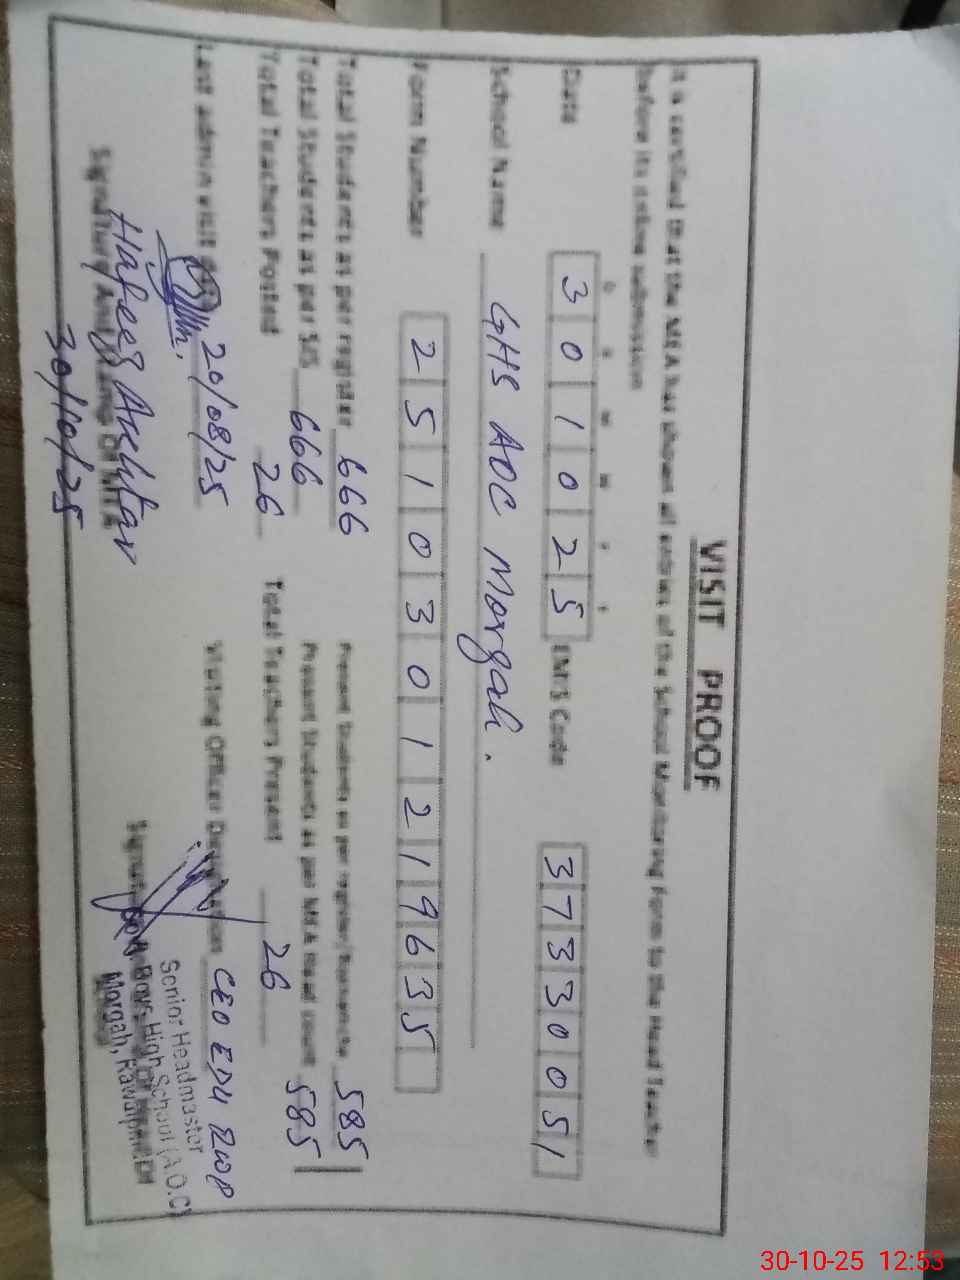 VISIT PROOF
It is certified that the MEA has shown all entries of the School Monitoring Form to the Head Teacher
before its online submission
D D M M Y Y
Date 3 0 1 0 2 5 EMIS Code 3 7 3 3 0 0 5 1
School Name GHS AOC Morgah.
Form Number 2 5 1 0 3 0 1 2 1 9 6 3 5
Total Students as per register 666 Present Students as per register 585
Total Students as per SIS 666 Present Students as per MEA Head count 585
Total Teachers Posted 26 Total Teachers Present 26
Last admin visit 20/08/25 Visiting Officer Designation CEO EDU RWP
Signature And Of MEA
Hafeez Akhtar
30/10/25
Senior Headmaster
Boys High School (A.O.C)
Morgah, Rawalpindi
30-10-25 12:53